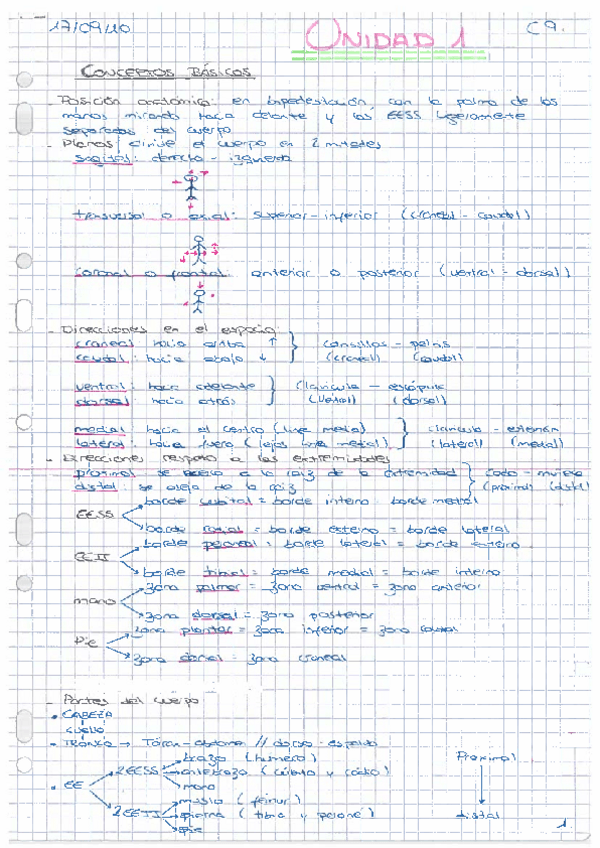 17/09/20
UNIDAD 1
C9.
CONCEPTOS BÁSICOS
- Posición anatómica: en bipedestación, con la palma de las
manos mirando hacia delante y las EESS ligeramente
separadas del cuerpo
- Planos: divide el cuerpo en 2 mitades
sagital: derecho - izquierda
transversal o axial: superior - inferior (craneal - caudal)
coronal o frontal: anterior o posterior (ventral - dorsal)
- Direcciones en el espacio:
craneal: hacia arriba ↑ } costillas - pelvis
caudal: hacia abajo ↓ (craneal) (caudal)
ventral: hacia adelante } clavícula - escápula
dorsal: hacia atrás (ventral) (dorsal)
medial: hacia el centro (línea media) } clavícula - esternón
lateral: hacia fuera (lejos línea medial) (lateral) (medial)
- Direcciones respecto a las extremidades
proximal: se acerca a la raíz de la extremidad } codo - muñeca
distal: se aleja de la raíz (proximal) (distal)
EESS
borde cubital = borde interno = borde medial
borde radial = borde externo = borde lateral
EEII
borde peroneal = borde lateral = borde externo
borde tibial = borde medial = borde interno
mano
zona palmar = zona ventral = zona anterior
zona dorsal = zona posterior
Pie
zona plantar = zona inferior = zona caudal
zona dorsal = zona craneal
- Partes del cuerpo
• CABEZA
cuello
• TRONCO → Tórax - abdomen // dorso - espalda
• EE
2EESS
brazo (húmero)
antebrazo (cúbito y
mano
2EEII
muslo (fémur)
pierna (tibia y peroné)
pie
Proximal
distal
1